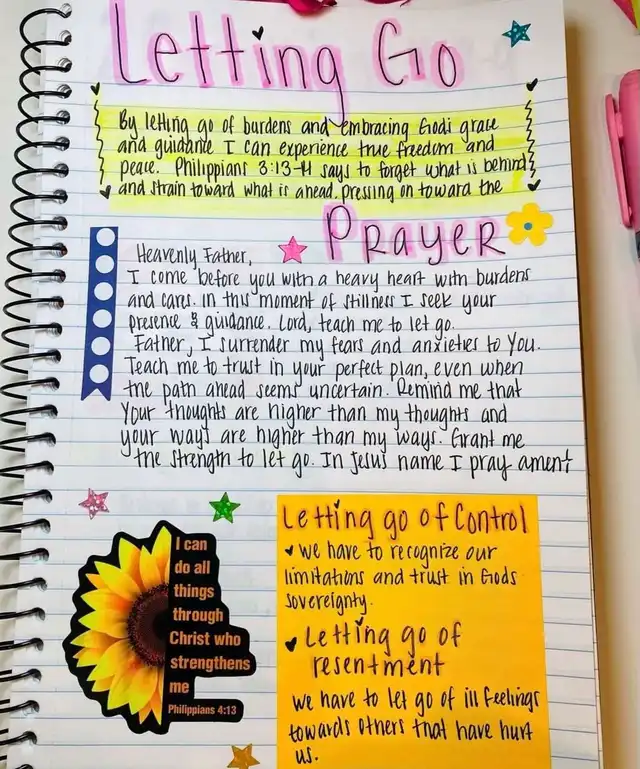 Letting Go
By letting go of burdens and embracing Gods grace
and guidance I can experience true freedom and
peace. Philippians 3:13-14 says to forget what is behind
and strain toward what is ahead. pressing on toward the
Prayer
Heavenly Father,
I come before you with a heavy heart with burdens
and cares. In this moment of stillness I seek your
presence & guidance. Lord, teach me to let go.
Father, I surrender my fears and anxieties to You.
Teach me to trust in your perfect plan, even when
the path ahead seems uncertain. Remind me that
your thoughts are higher than my thoughts and
your ways are higher than my ways. Grant me
the strength to let go. In Jesus name I pray amen
I can
do all
things
through
Christ who
strengthens
me
Philippians 4:13
Letting go of Control
we have to recognize our
limitations and trust in Gods
sovereignty.
Letting go of
resentment
we have to let go of ill feelings
towards others that have hurt
us.